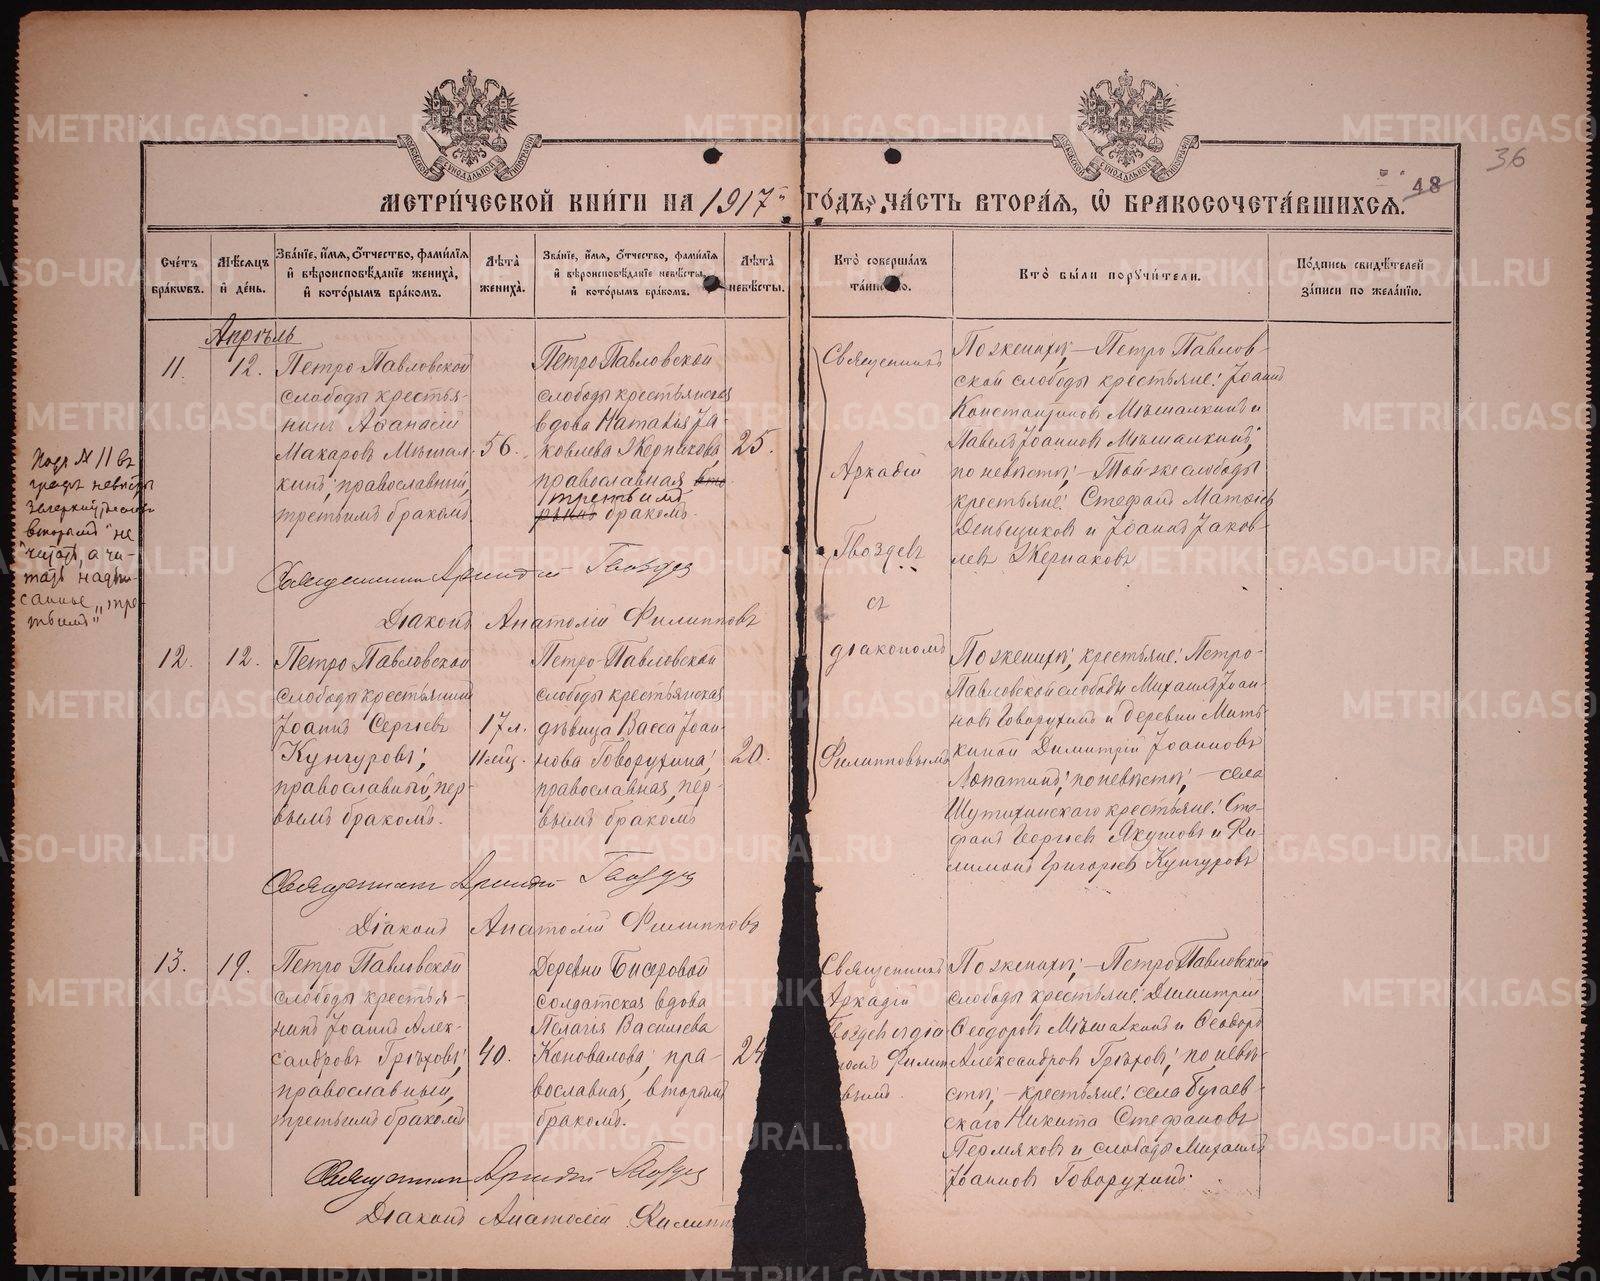 36
48
МЕТРИ́ЧЕСКОЙ КНИ́ГИ НА 1917й ГО́ДЪ, ЧА́СТЬ ВТОРА́Я, Ѡ БРАКОСОЧЕТА́ВШИХСЯ.
Сче́тъ бра́кѡвъ.
Мѣ́сяцъ и де́нь.
Зва́нїе, и́мя, ѻ́тчество, фами́лїя и вѣроисповѣ́данїе жениха́, и кото́рымъ бра́комъ.
Лѣ́та жениха́.
Зва́нїе, и́мя, ѻ́тчество, фами́лїя и вѣроисповѣ́данїе невѣ́сты, и кото́рымъ бра́комъ.
Лѣ́та невѣ́сты.
Кто̀ соверша́лъ та́инство.
Кто̀ бы́ли поручи́тели.
По́дпись свидѣ́телей за́писи по жела́нїю.
Апрѣль
11.
12.
Петро Павловской
слободы крестья-
нинъ Аѳанасій
Макаровъ Мѣшал-
кинъ, православный,
третьимъ бракомъ
56.
Петро Павловской
слободы крестьянская
вдова Наталія Іа-
ковлева Жернакова,
православная вто-
третьимъ
рымъ бракомъ.
25.
Священникъ
Аркадій
Гвоздевъ
съ
діакономъ
Филипповымъ
По женихѣ; – Петро Павлов-
ской слободы крестьяне: Іоаннъ
Константиновъ Мѣшалкинъ и
Павелъ Іоанновъ Мѣшалкинъ;
по невѣстѣ; – Той-же слободы
крестьяне: Стефанъ Матѳіевъ
Деньщиковъ и Іоаннъ Іаков-
левъ Жернаковъ
Подъ № 11 въ
графѣ невѣсты
зачеркнутое слово
"вторымъ" не
читать, а чи-
тать надпи-
санное "тре-
тьимъ"
Священникъ Аркадій Гвоздев
Діаконъ Анатолій Филипповъ
12.
12.
Петро Павловской
слободы крестьянинъ
Іоаннъ Сергіевъ
Кунгуровъ;
православный, пер-
вымъ бракомъ.
17 л.
11 мѣс.
Петро-Павловской
слободы крестьянская
дѣвица Васса Іоан-
нова Говорухина;
православная, пер-
вымъ бракомъ
20.
По женихѣ; крестьяне: Петро-
Павловской слободы Михаилъ Іоан-
новъ Говорухинъ и деревни Мить-
киной Димитрій Іоанновъ
Лопатинъ; по невѣстѣ; – села
Шутихинскаго крестьяне: Сте-
фанъ Георгіевъ Якушовъ и Фи-
лимонъ Григорьев Кунгуровъ
Священникъ Аркадій Гвоздев
Діаконъ Анатолій Филипповъ
13.
19.
Петро Павловской
слободы крестья-
нинъ Іоаннъ Алек-
сандровъ Грѣховъ;
православный,
третьимъ бракомъ
40.
Деревни Бисеровой
солдатская вдова
Пелагія Василіева
Коновалова; пра-
вославная, вторымъ
бракомъ.
24
Священникъ
Аркадій
Гвоздевъ съ діа
Филип
вымъ.
По женихѣ; – Петро Павловской
слободы крестьяне: Димитрій
Ѳеодоровъ Мѣшалкинъ и Ѳеодоръ
Александровъ Грѣховъ; по невѣ-
стѣ; – крестьяне: села Бугаев-
скаго Никита Стефановъ
Пермяковъ и слободы Михаилъ
Іоанновъ Говорухинъ.
Священникъ Аркадій Гвоздев
Діаконъ Анатолій Филипп